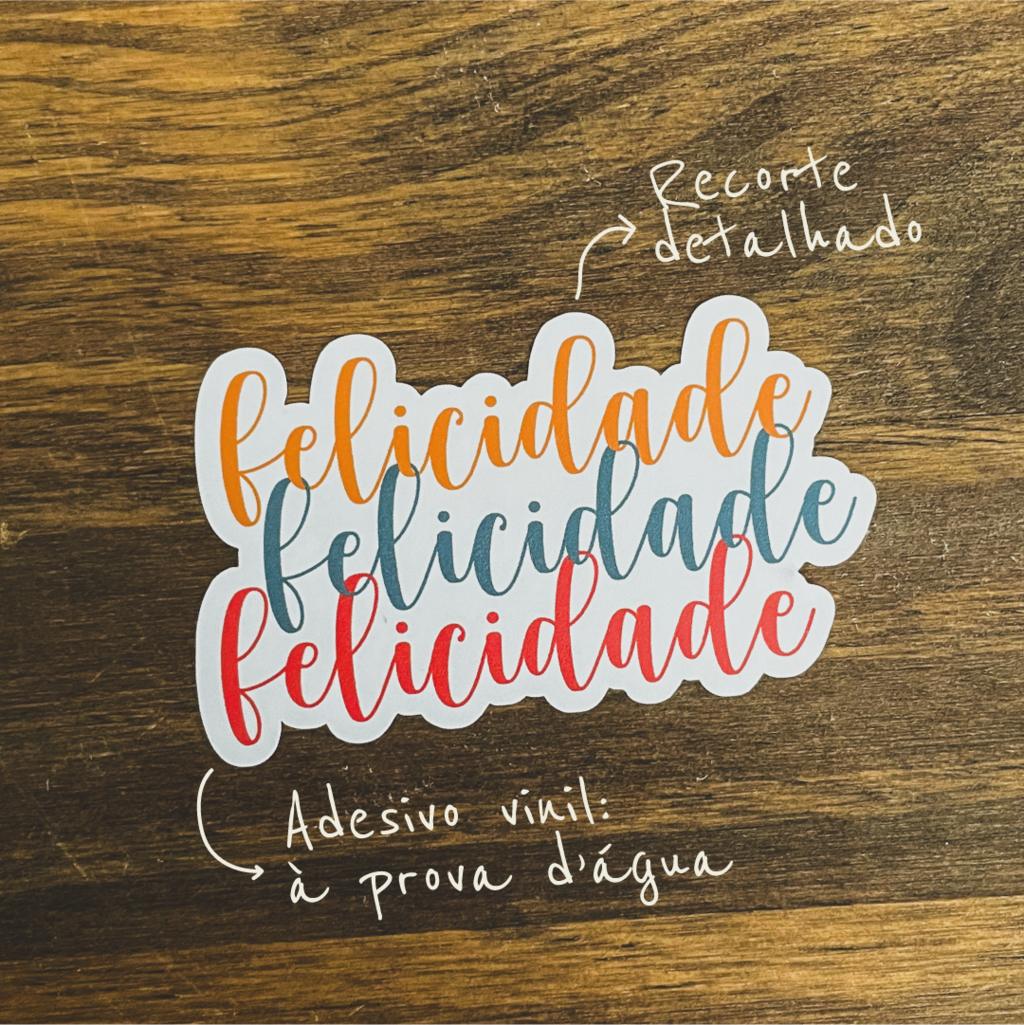 Recorte
detalhado
felicidade
felicidade
felicidade
Adesivo vinil:
à prova d'água